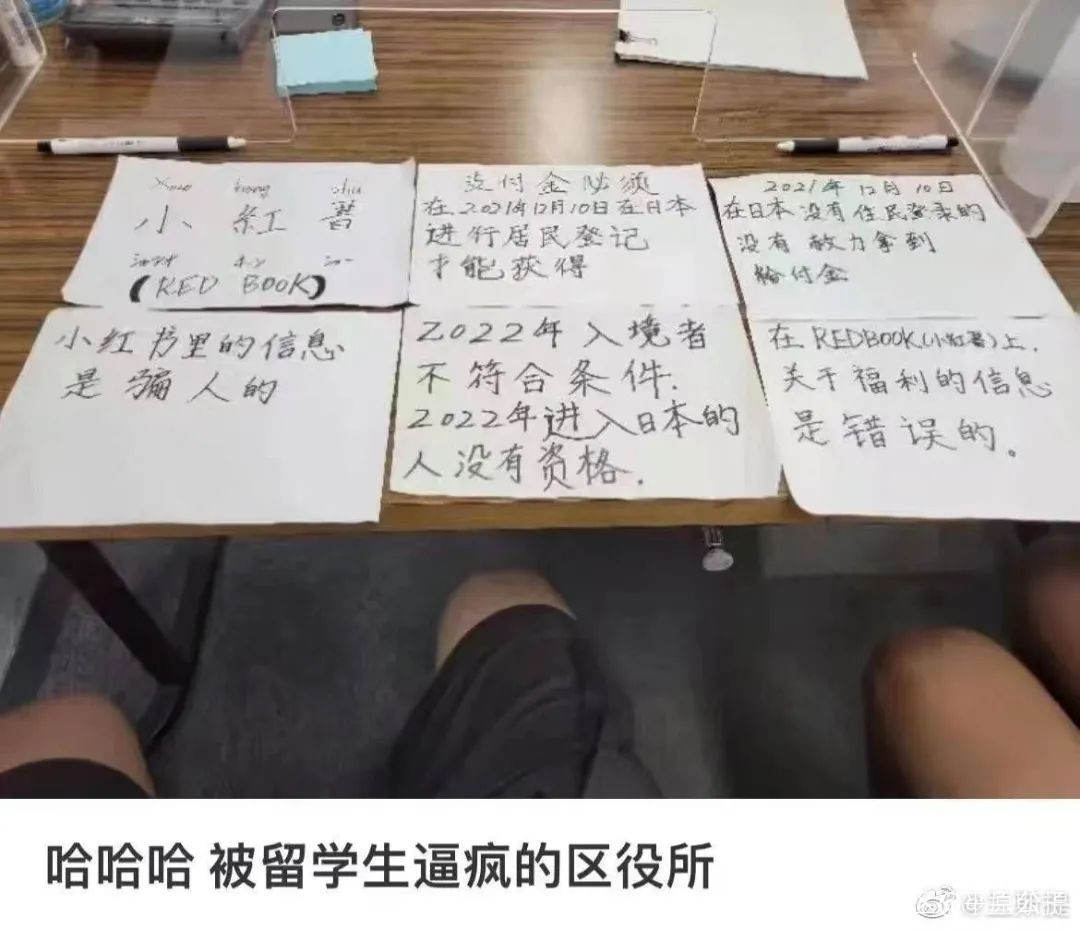 Xiao hong shu
小 紅 書
(RED BOOK)
支付金必须
在2021年12月10日在日本
进行居民登记
才能获得
2021年 12月 10日
在日本没有住民登录的
没有 力拿到
给付金
小红书里的信息
是骗人的
2022年 入境者
不符合条件.
2022年进入日本的
人没有资格.
在REDBOOK(小紅書)上.
关于福利的信息
是错误的。
哈哈哈 被留学生逼疯的区役所